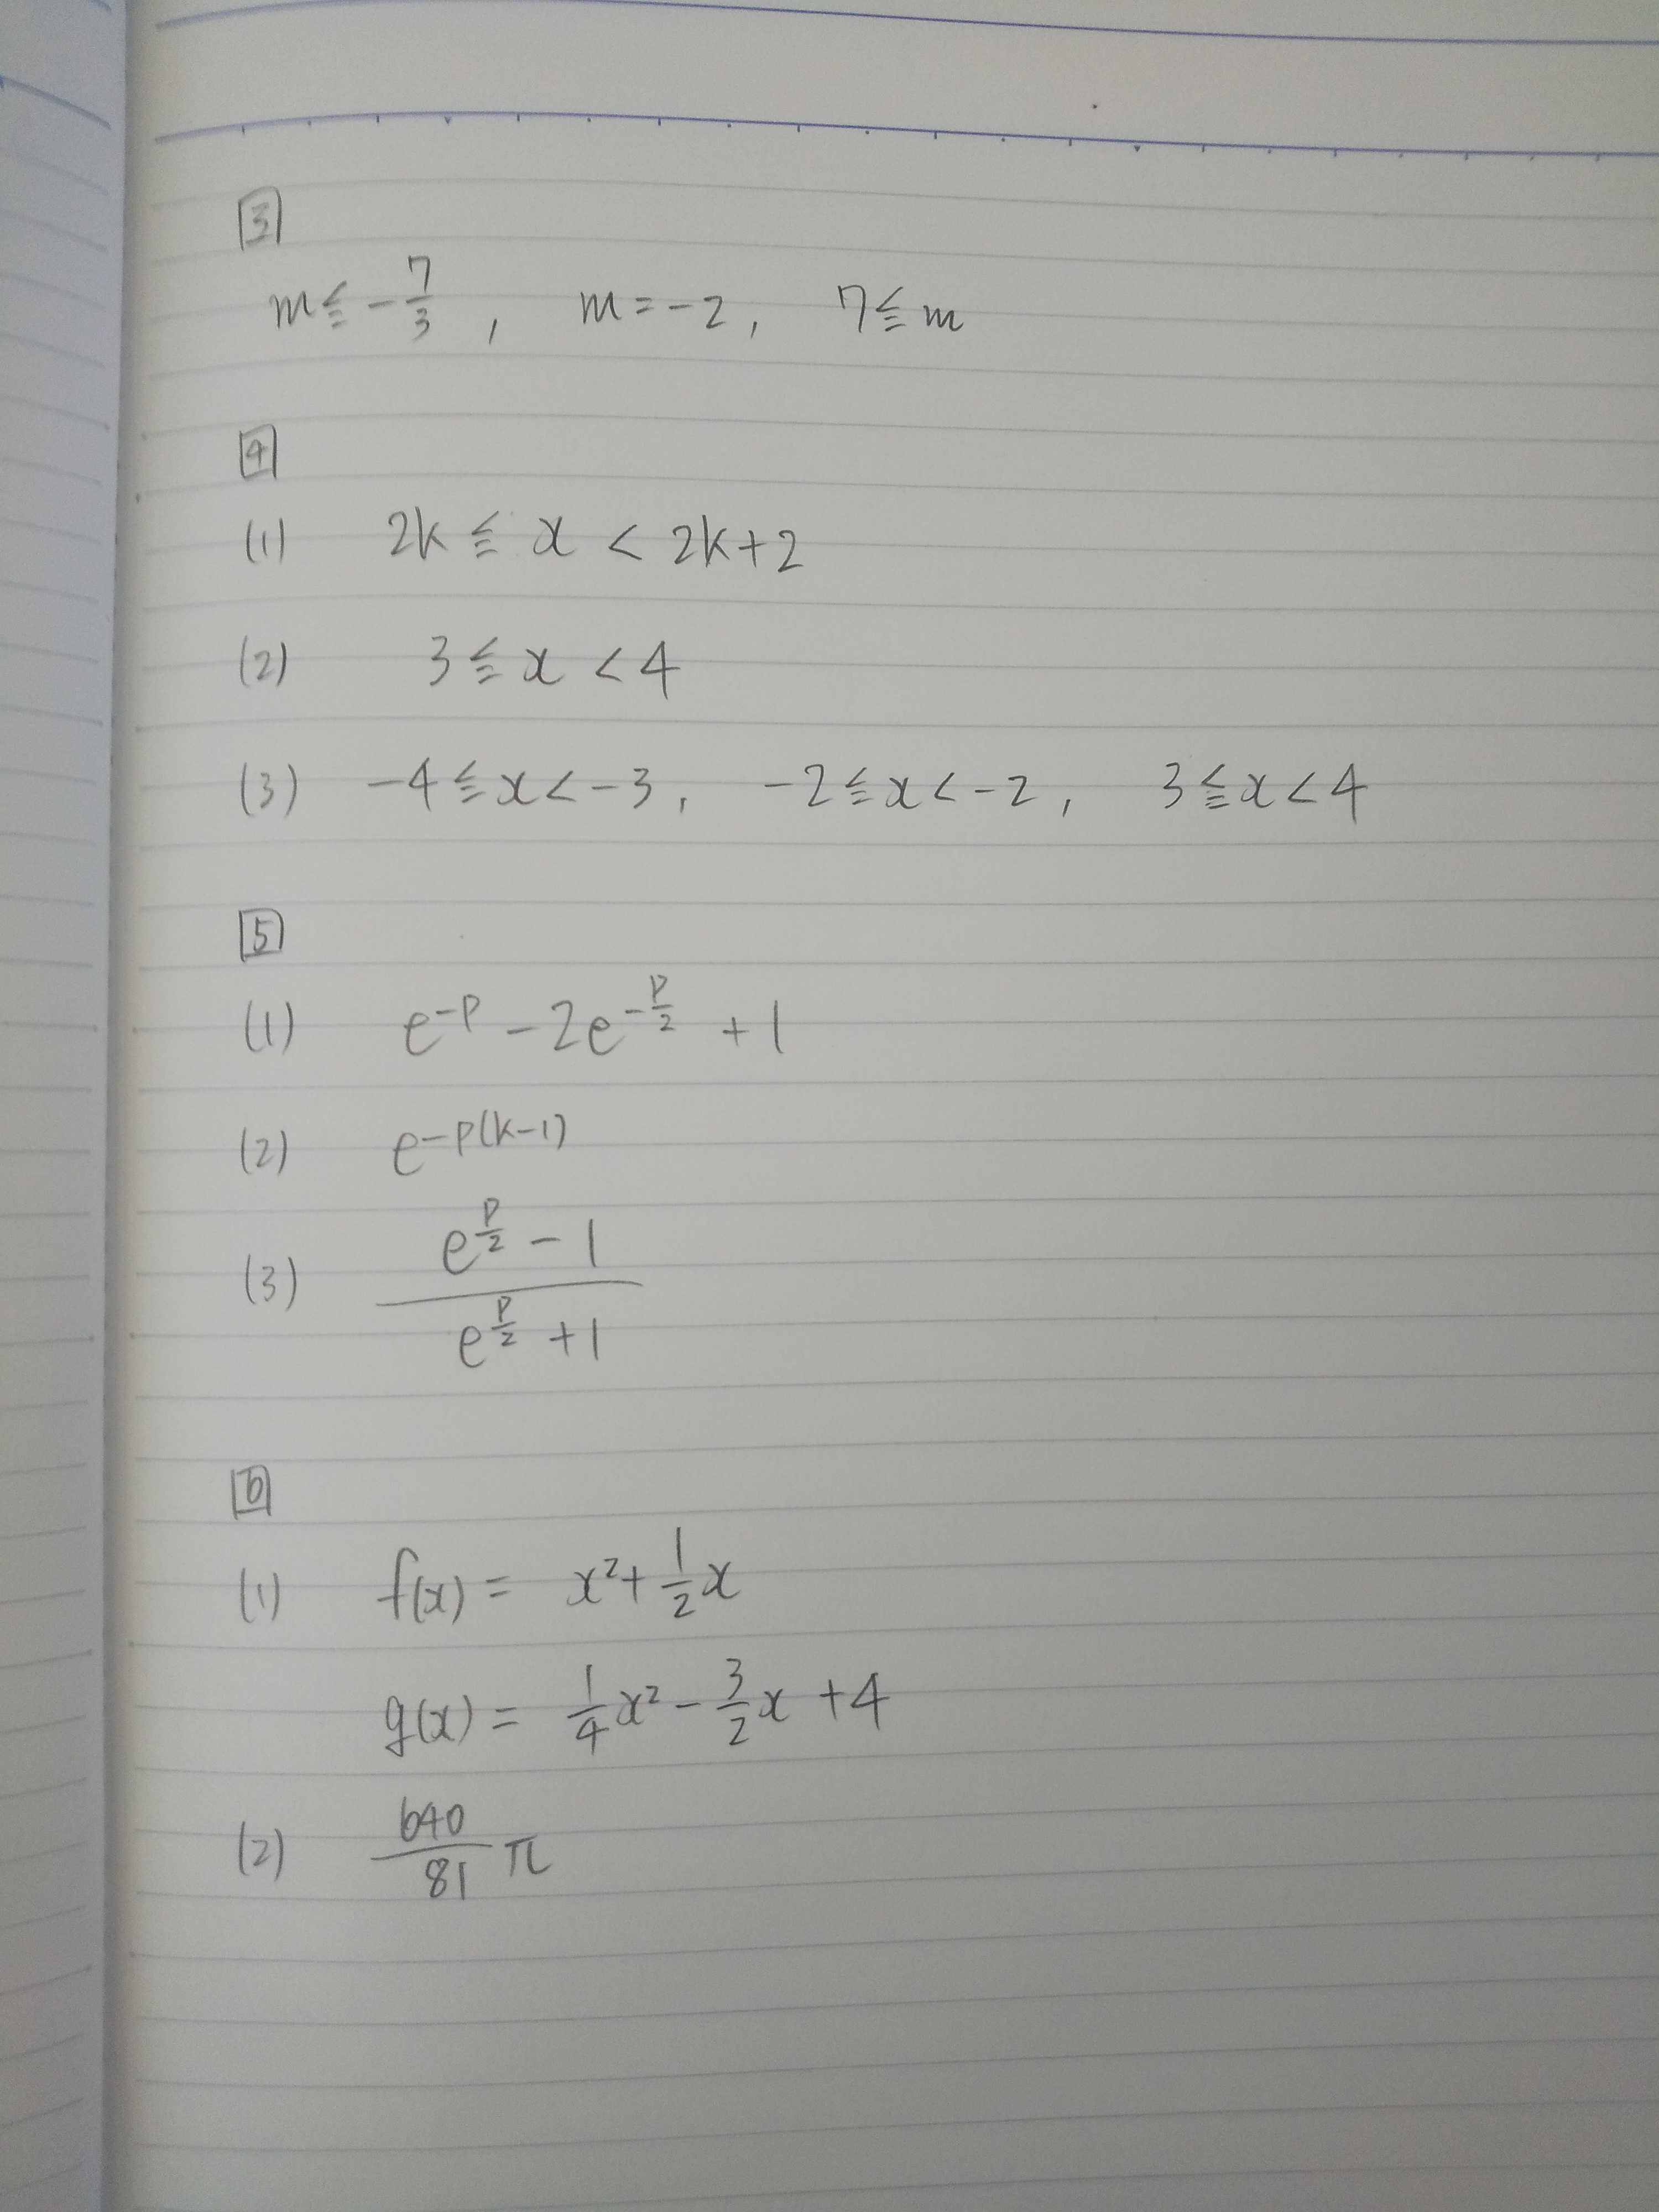 3
m ≦ -7/3 , m = -2 , 7 ≦ m
4
(1) 2k ≦ x < 2k+2
(2) 3 ≦ x < 4
(3) -4 ≦ x < -3 , -2 ≦ x < -2 , 3 ≦ x < 4
5
(1) e^{-p} - 2e^{-p/2} + 1
(2) e^{-p(k-1)}
(3) (e^{p/2} - 1)/(e^{p/2} + 1)
6
(1) f(x) = x² + 1/2 x
g(x) = 1/4 x² - 3/2 x + 4
(2) 640/81 π